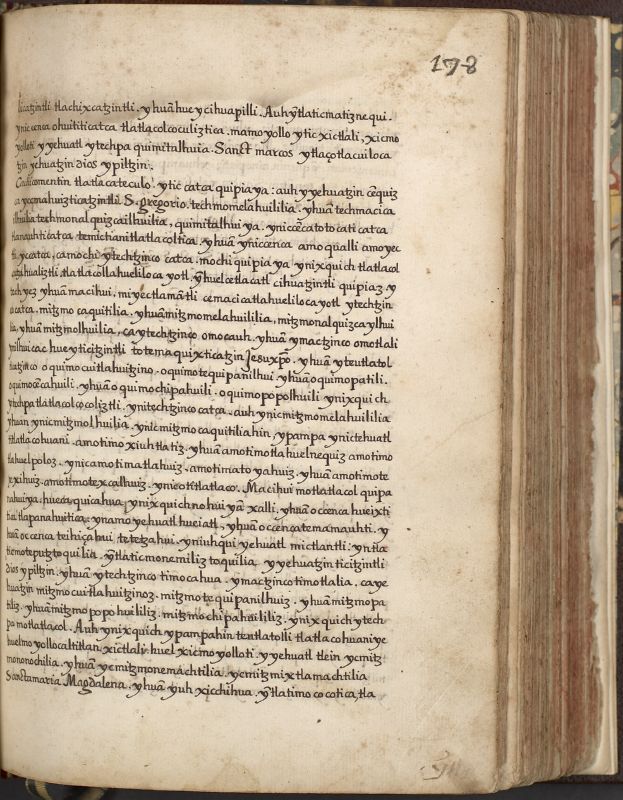 178
ticatzintli tlachixcatzintli. yhuā hueycihuapilli. Auh ȳtlaticmatiznequi.
ynic cenca ohuititicatca tlatlacolcoculiztica. mamoyollo ytic xictlali, xicmo
yolloti yyehuatl ytechpa quimitalhuia. Sanct marcos ytlaçotlacuiloca
tzin yehuatzin dios ypiltzin.
tlatlacateculo ytic catca quipiaya: auh yyehuatzin cēquiz
ca yecmahuizticatzintli S. gregorio. techmomelahuililia. yhuā techmacica
ilhuilia techmonalquizcailhuilia, quimitalhuiya. yniccēca totocaticatca
tlanauhticatca temictiani tlatlacoltica, yhuā ynic cenca amo qualli amoyec
tli ycatca, camochi ytechtzinco catca. mochi quipiaya ynixquich tlatlacol
tlatlacollahuelilocayotl. yhuel cetlacatl cihuatzintli quipiaz y
tech yez yhuā macihui. miyectlamātli cemacicatlahuelilocayotl ytechtzin
co catca. mitzmocaquitilia. yhuā mitzmomelahuililia, mitzmonalquizcaylhui
lia, yhuā mitzmolhuilia, ca ytechtzinco omocauh. yhuā ymactzinco omotlali
ynilhuicac huey ticitzintli totemaquixticatzin Jesuxp̄o. yhuā yteutlatol
tzinco oquimocuitlahuitzino. oquimotequipanilhui yhuā oquimopatili.
oquimocēcahuili. yhuā oquimochipahuili. oquimopopolhuili ynixquich
ytechpa tlatlacolcocoliztli. ynitechtzinco catca. auh ynic mitzmomelahuililia
yhuan ynic mitzmolhuilia, ynic mitzmocaquitilia hin, ypampa ynic tehuatl
titlatlacohuani. amotimoxiuhtlatiz. yhuā amotimotlahuelnequiz amotimo
tlahuelpoloz. ynic amotimatlahuiz. amotimatoyahuiz. yhuā amotimote
pexihuiz. amotimotexcalhuiz. ynic otitlatlaco. Macihui motlatlacol quipa
nahuiya. huecaquiçahua, ynixquich nohuiyā xalli. yhuā occenca hueixti
tlapanahuitica. ynamo yehuatl hueiatl, yhuā occenca temamauhti. y
huā occenca teihiçahui tetetzahui. yniuhqui yehuatl mictlantli: yntla
ticmoteputztoquilia. ytlaticmonemiliztoquilia, yyehuatzin ticitzintli
dios ypiltzin. yhuā ytechtzinco timocahua. ymactzinco timotlalia. ca ye
huatzin mitzmocuitlahuitzinoz. mitzmotequipanilhuiz. yhuā mitzmopa
tiliz. yhuā mitzmopopohuililiz. mitzmochipahuililiz. ynixquich ytech
po motlatlacol. Auh ynixquich ypampa hin teutlatolli tlatlacohuaniye
huelmoyollocaltitlan xictlali. huel xicmoyolloti. yyehuatl tlein ycmitz
mononochilia. yhuā yemitzmonemachtilia. ycmitzmixtlamachtilia
Sanctamaria Magdalena. yhuā yuh xicchihua. ytlatimococotica, tla